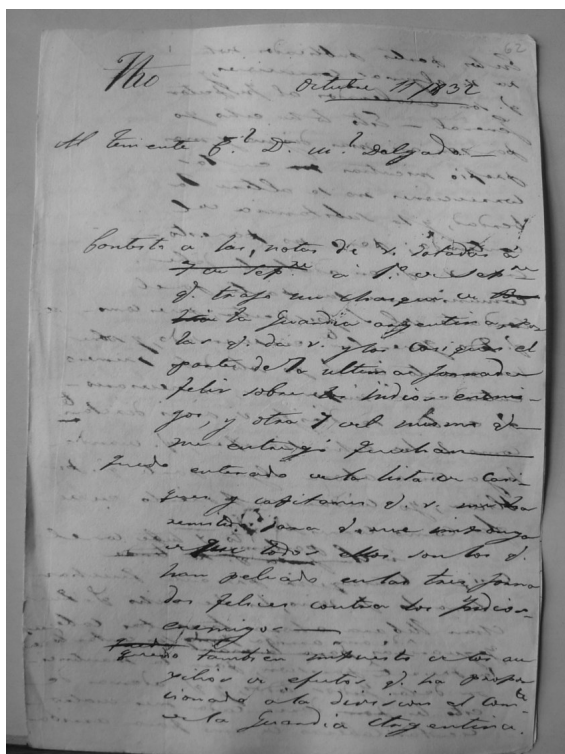 62
Octubre 11/832
Al Teniente C.l D. M.l Delgado
Contesto a las notas de V. datadas a
7 de Sep.re a 1.o de Sep.re
q. trajo un chasqui de
la Guardia Argentina
las q. da V. y los caciques el
parte de la ultima jornada
feliz sobre los indios enemi-
gos, y otra 7 del mismo q.
me entregó
Quedo enterado de la lista de Caci-
ques y capitanes q. V. me ha
remitido para q. me imponga
de que todos ellos son los q.
han peleado en las tres jorna
das felices contra los Indios
enemigos
Quedo tambien impuesto de los au-
xilios de efectos q. ha propor-
cionado á la division el Com.te
de la Guardia Argentina.